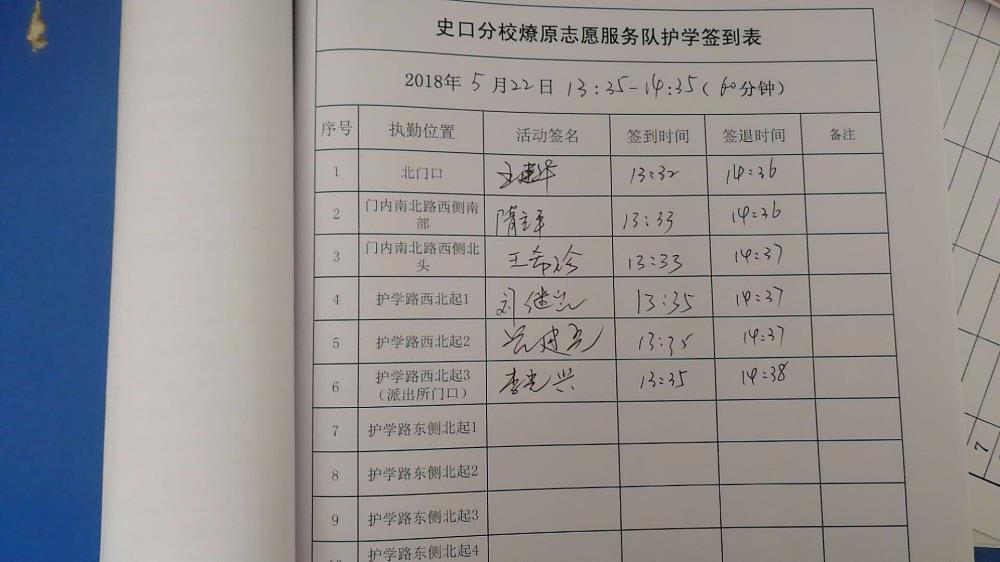 史口分校燎原志愿服务队护学签到表
2018年 5 月 22 日 13:35-14:35(60分钟)
序号 执勤位置 活动签名 签到时间 签退时间 备注
1 北门口 王建华 13:32 14:36
2 门内南北路西侧南
部 隋立军 13:33 14:36
3 门内南北路西侧北
头 王希珍 13:33 14:37
4 护学路西北起1 13:35 14:37
5 护学路西北起2 13:35 14:37
6 护学路西北起3
(派出所门口) 李光兴 13:35 14:38
7 护学路东侧北起1
8 护学路东侧北起2
9 护学路东侧北起3
护学路东侧北起4
7